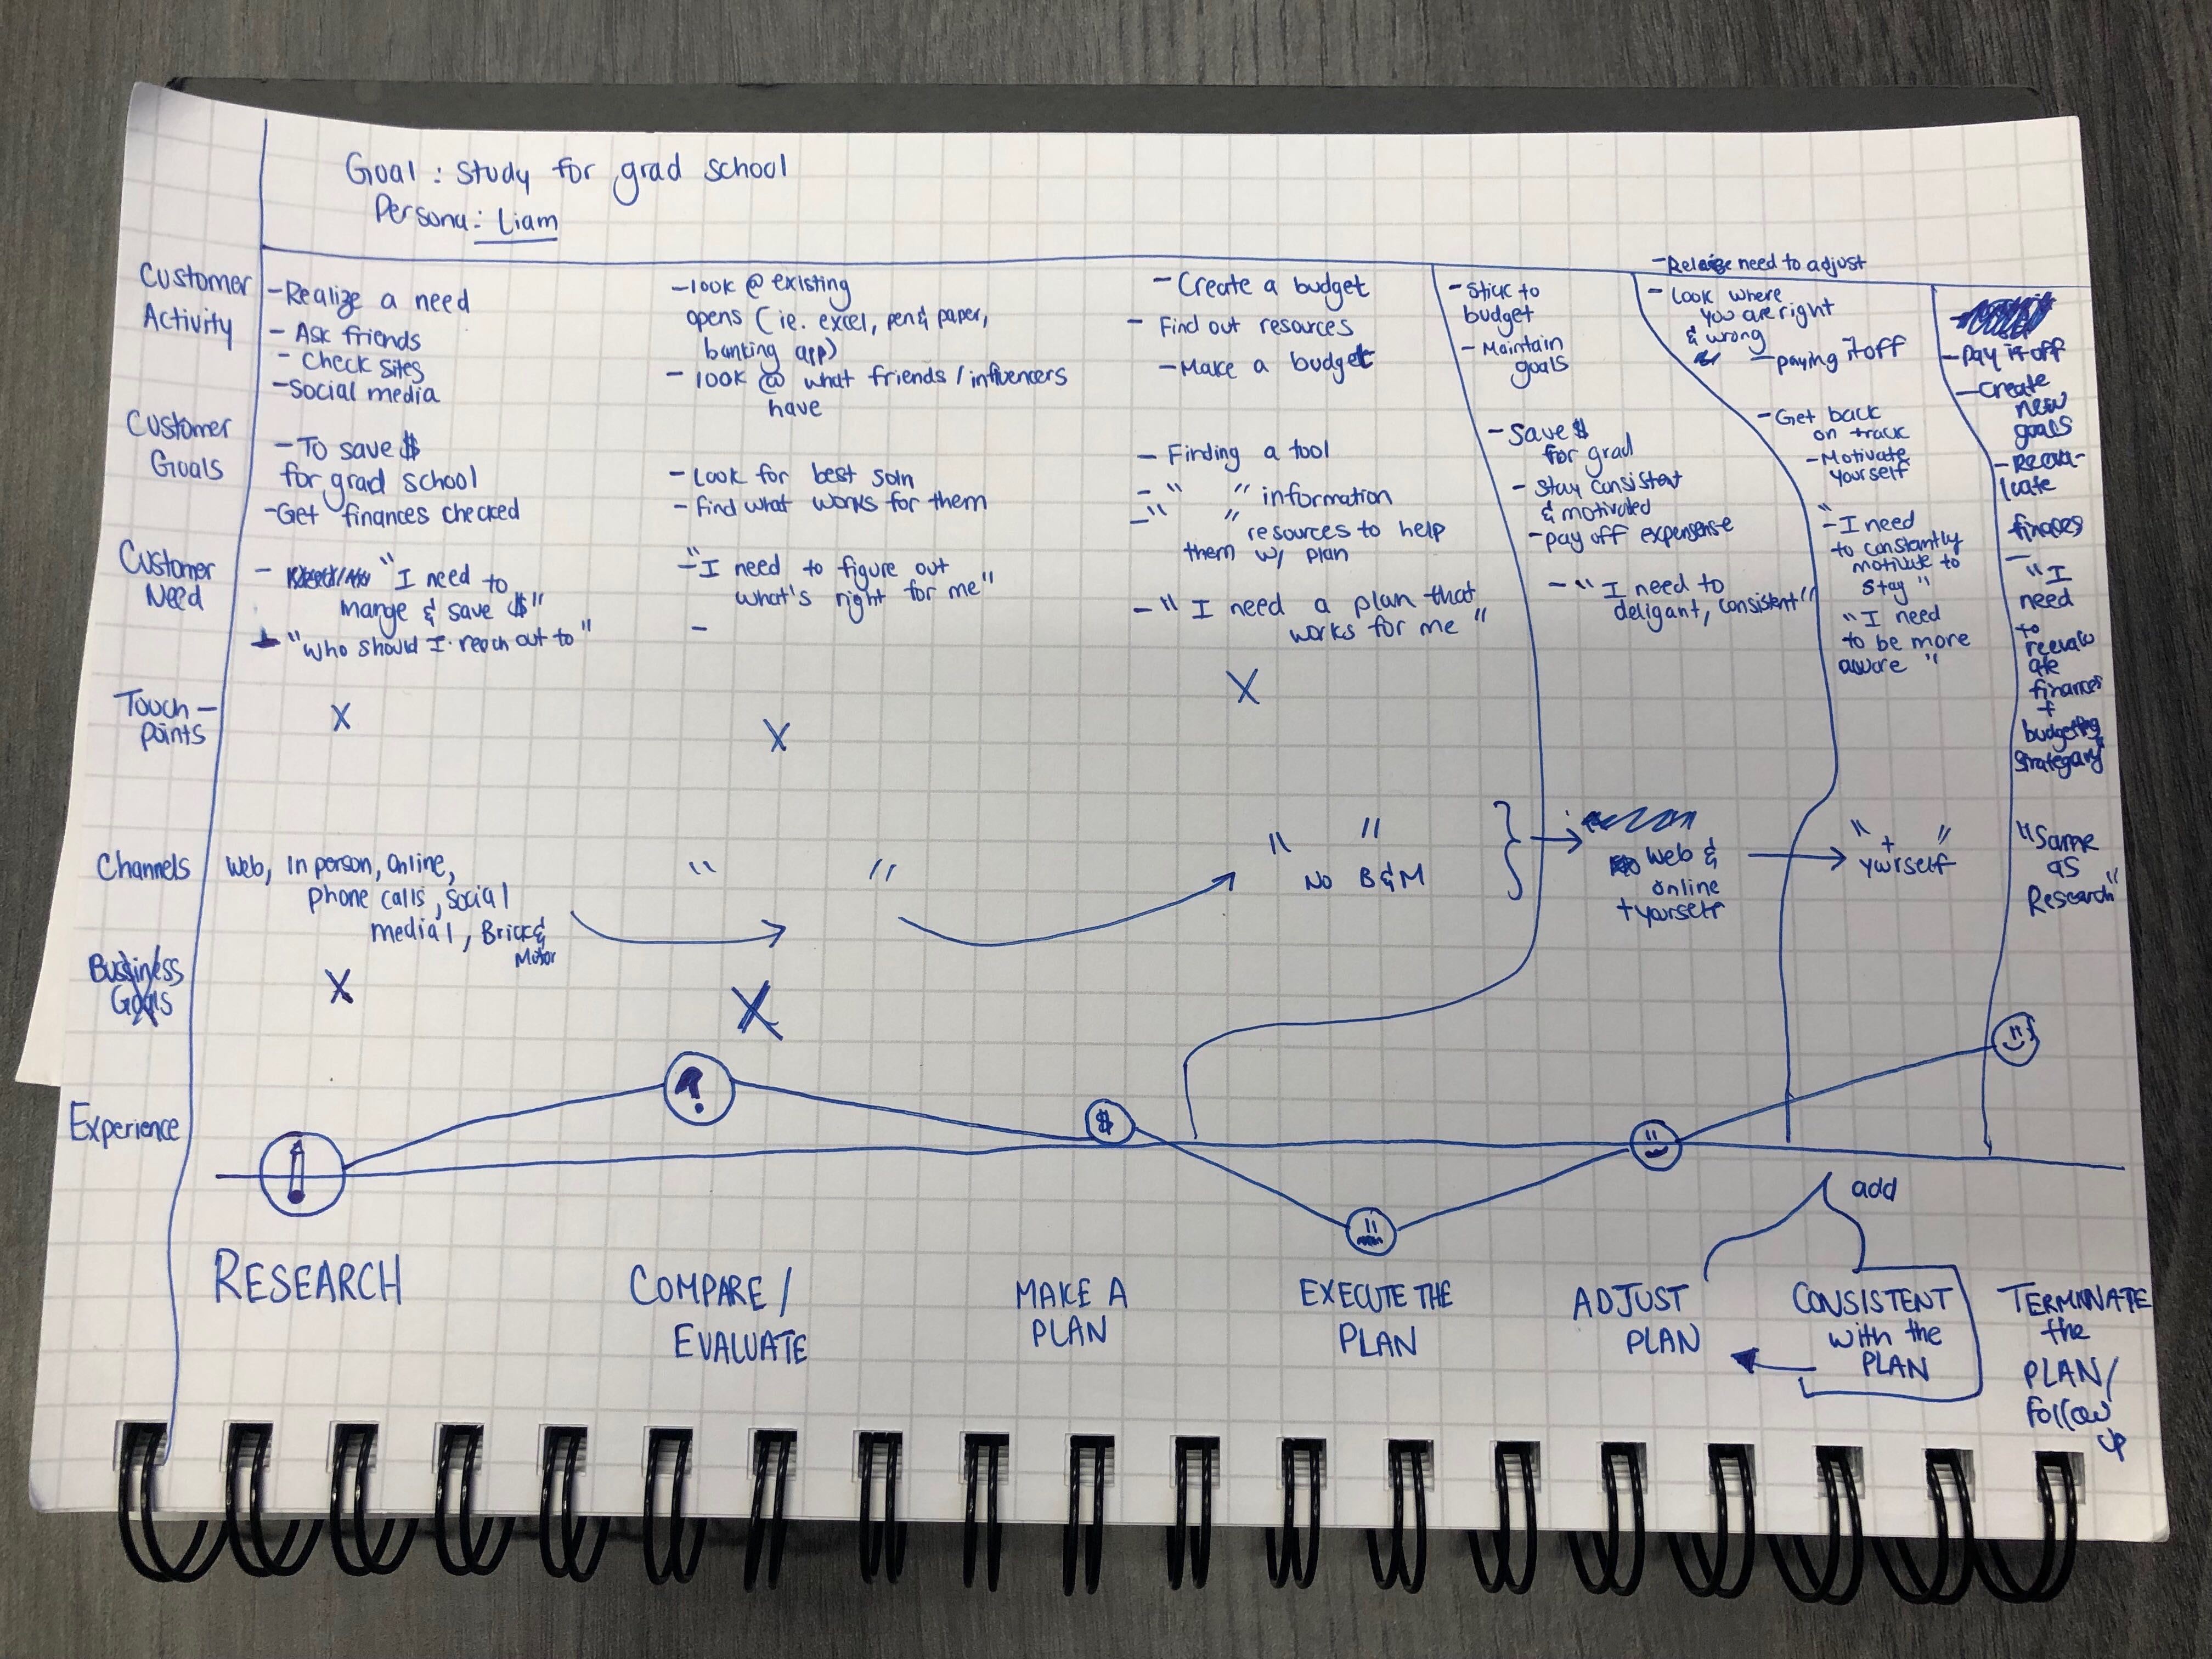 Goal : Study for grad school
Persona : Liam
Customer
Activity
- Realize a need
- Ask friends
- Check sites
- Social media
- look @ existing
opens (ie. excel, pen & paper,
banking app)
- look @ what friends / influencers
have
- Create a budget
- Find out resources
- Make a budget
- Stick to
budget
- Maintain
goals
- need to adjust
- Look where
you are right
& wrong
- paying it off
- pay it off
- Create
new
goals
Customer
Goals
- To save $
for grad school
- Get finances checked
- Look for best soln
- Find what works for them
- Finding a tool
- " " information
- " " resources to help
them w/ plan
- Save $
for grad
- Stay consistent
& motivated
- pay off expensense
- Get back
on track
- Motivate
yourself
finances
Customer
Need
- "I need to
mange & save $"
- "Who should I reach out to"
- "I need to figure out
what's right for me"
-
- "I need a plan that
works for me"
- "I need to
deligant, consistent"
- I need
to constantly
motivate to
stay "
"I need
to be more
aware "
- "I
need
to
reevalu
ate
finances
+
budgeting
Touch -
points
X
X
X
Channels
Web, In person, Online,
phone calls, social
medial, Brick &
Motor
" "
" "
No B & M
Web &
online
+ yourself
" + "
yourself
"Same
as
Research"
Business
Goals
X
X
Experience
?
$
add
RESEARCH
COMPARE /
EVALUATE
MAKE A
PLAN
EXECUTE THE
PLAN
ADJUST
PLAN
CONSISTENT
with the
PLAN
TERMINATE
the
PLAN /
Follow
up